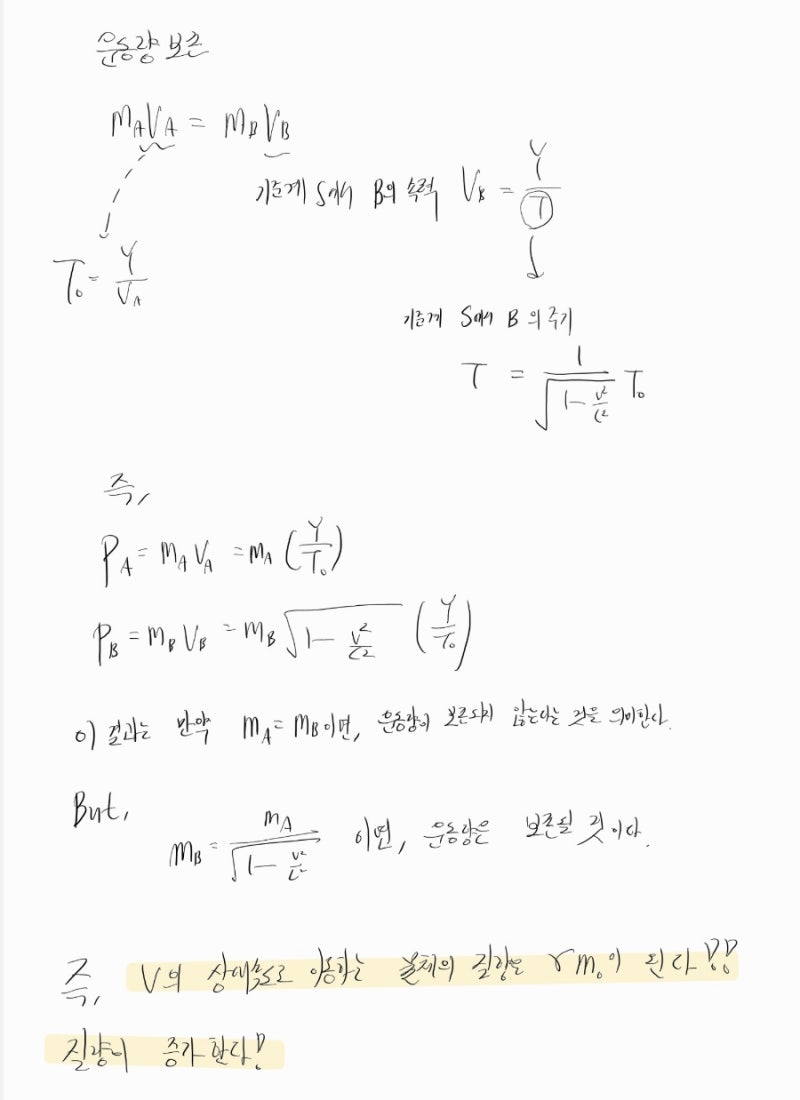 운동량 보존
m_A V_A = m_B V_B
기준계 S에서 B의 속력 V_B = Y/T
T₀ = Y/V_A
기준계 S에서 B의 주기
T = 1/√(1 - v²/c²) T₀
즉,
P_A = m_A V_A = m_A (Y/T₀)
P_B = m_B V_B = m_B √(1 - v²/c²) (Y/T₀)
이 결과는 만약 m_A = m_B이면, 운동량이 보존되지 않는다는 것을 의미한다.
But,
m_B = m_A/√(1 - v²/c²) 이면, 운동량은 보존될 것이다.
즉, V의 상대속도로 이동하는 물체의 질량은 γm₀이 된다!!
질량이 증가한다!